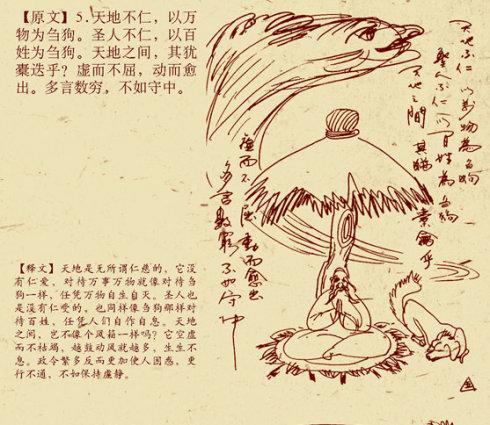 【原文】5.天地不仁，以万
物为刍狗。圣人不仁，以百
姓为刍狗。天地之间，其犹
橐迭乎？虚而不屈，动而愈
出。多言数穷，不如守中。
天地不仁以萬物為刍狗
聖人不仁以百姓為刍狗
天地之間其猶橐龠乎
虛而不屈動而愈出
多言數窮不如守中
【释文】天地是无所谓仁慈的，它没
有仁爱，对待万事万物就像对待刍
狗一样，任凭万物自生自灭。圣人也
是没有仁受的，也同样像刍狗那样对
待百姓，任凭人们自作自息。天地
之间，岂不像个风箱一样吗？它空虚
而不枯竭，越鼓动风就越多，生生不
息。政令繁多反而更加使人困惑，更
行不通，不如保持虚静。